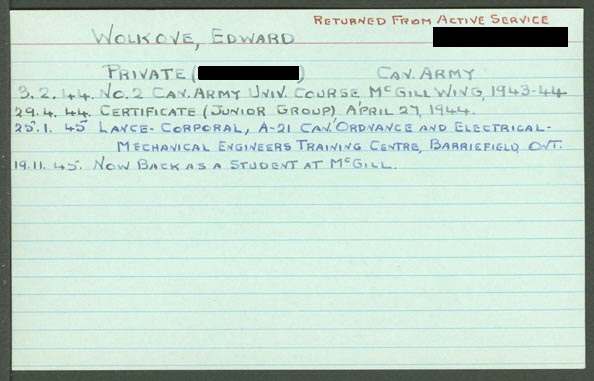 RETURNED FROM ACTIVE SERVICE
WOLKOVE, EDWARD
PRIVATE ( ) CAN. ARMY
3.2.44. NO. 2 CAN. ARMY UNIV. COURSE MCGILL WING, 1943-44
29.4.44. CERTIFICATE (JUNIOR GROUP) APRIL 27, 1944.
25.1.45 LANCE-CORPORAL, A-21 CAN. ORDNANCE AND ELECTRICAL-
MECHANICAL ENGINEERS TRAINING CENTRE, BARRIEFIELD, ONT.
19.11.45. NOW BACK AS A STUDENT AT MCGILL.